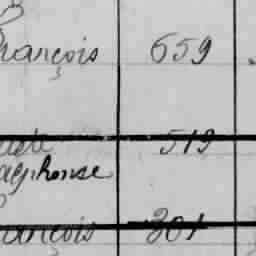 François 659
519
Alphonse
François 301